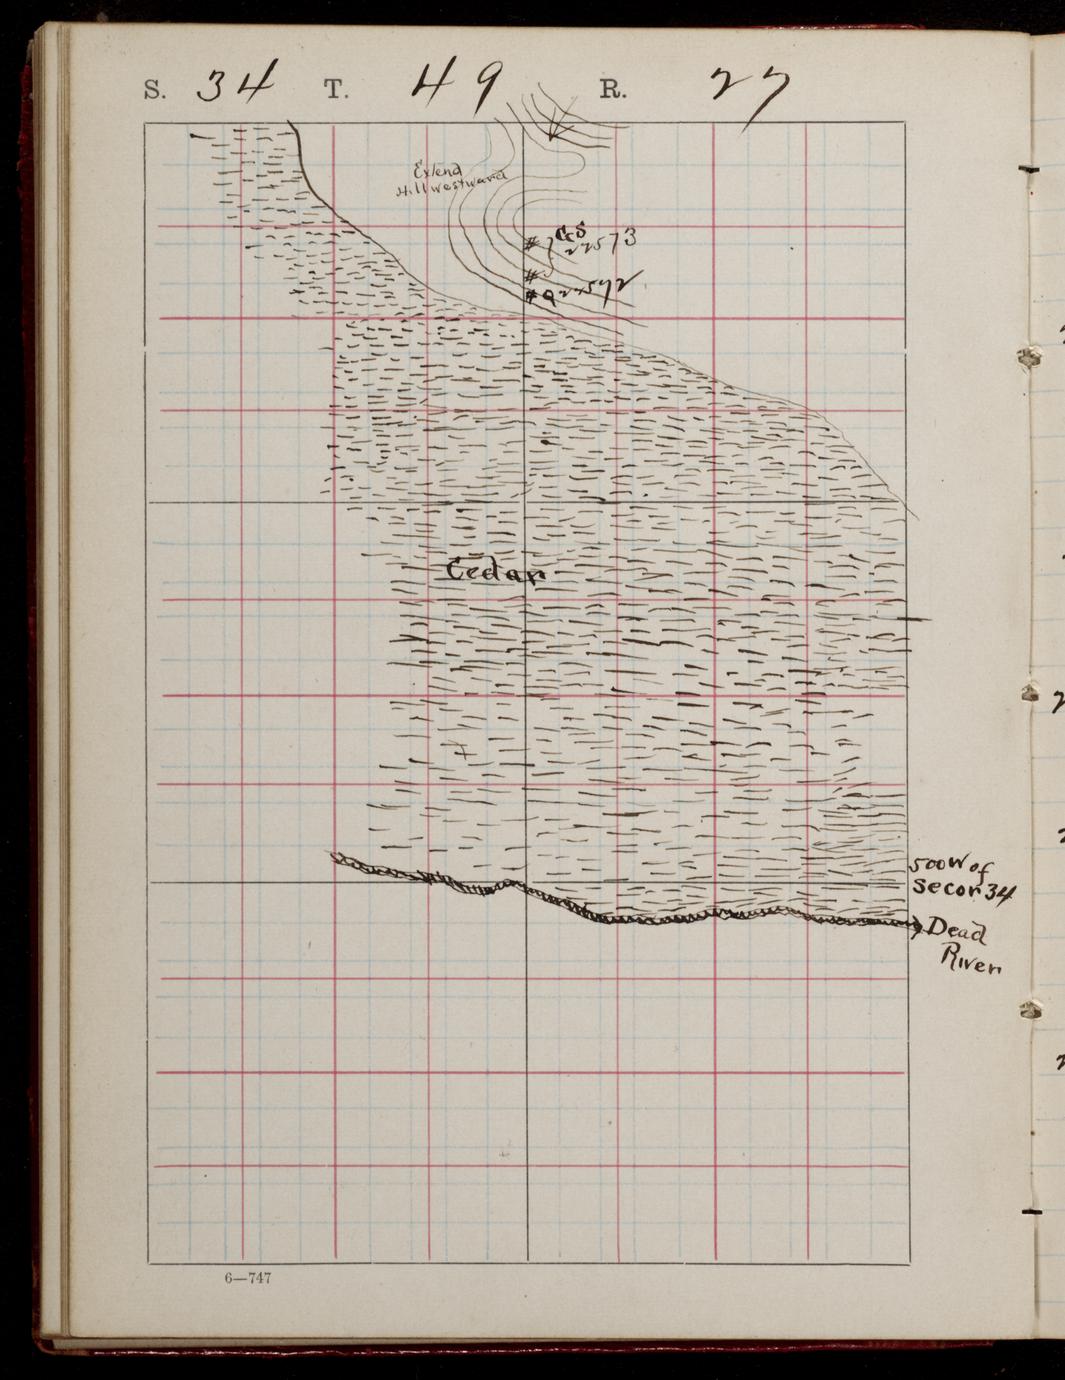 S. 34 T. 49 R. 27
Extend
Hill westward
# 1 CCS
22573
#
# 9 22572
Cedar
500 W of
Se cor 34
Dead
River
6—747